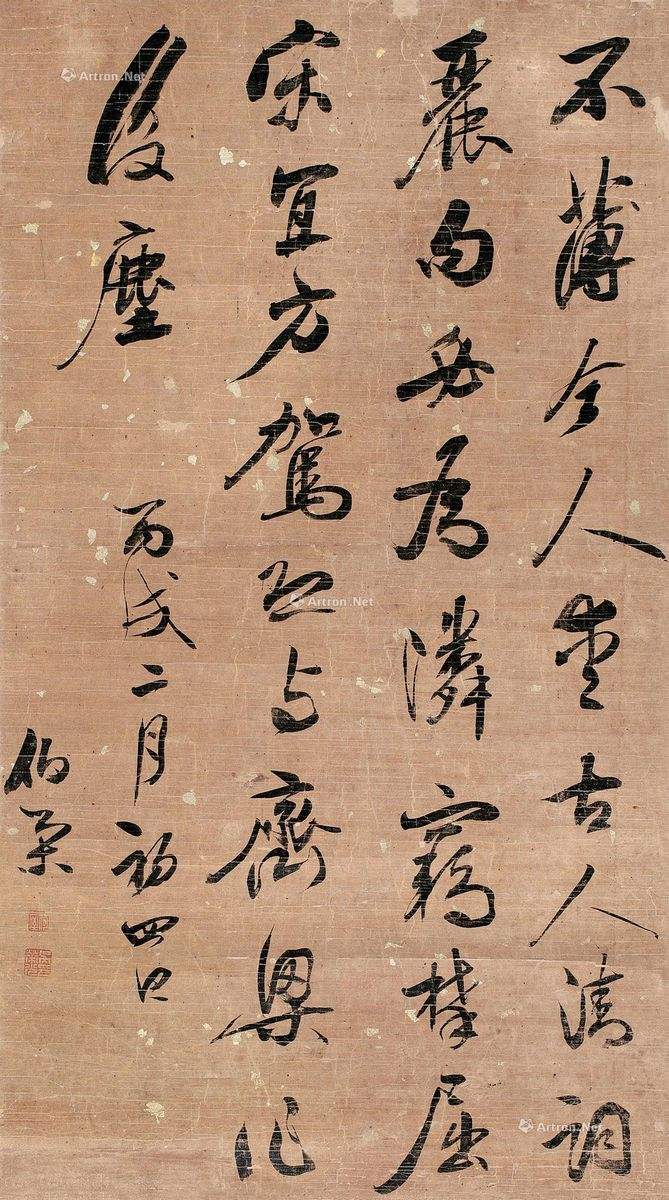 不薄今人愛古人清詞
麗句必為隣竊攀屈
宋宜方駕恐与齊梁作
後塵
丙戌二月初四日
伯
Artron.Net
Artron.Net
Artron.Net
Artron.Net